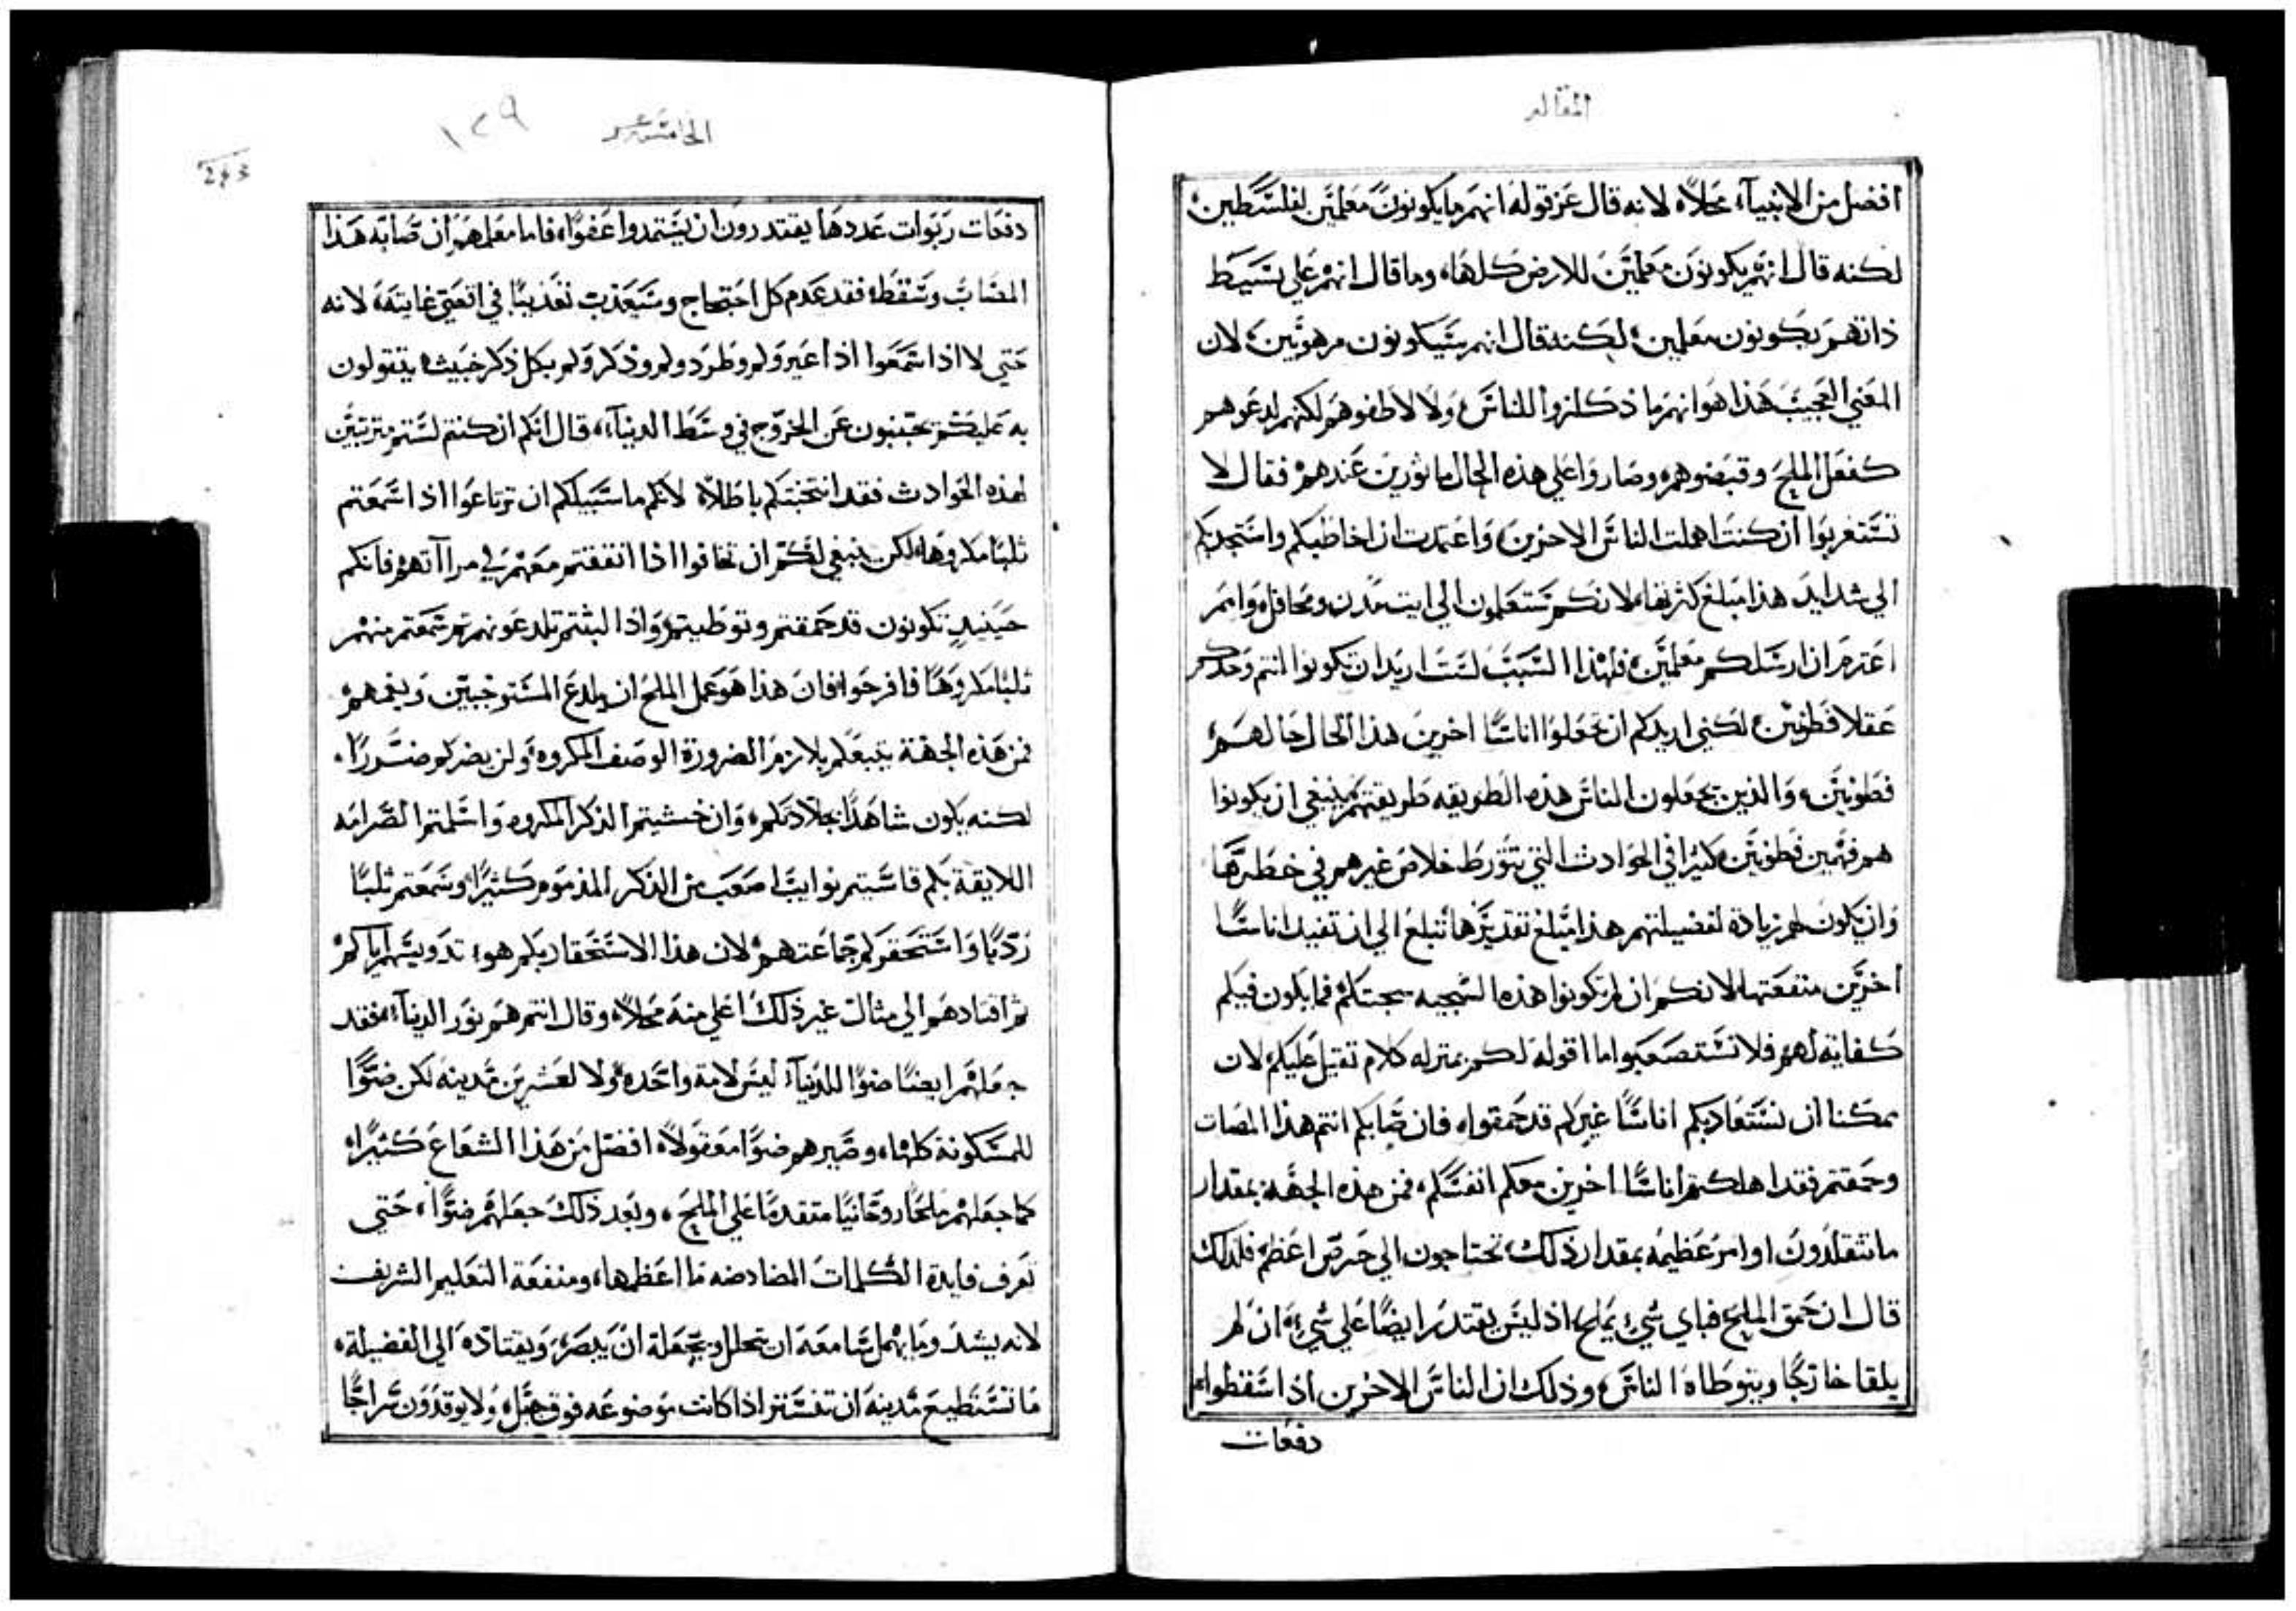 المقاله
افضل من الانبيآء محلاً، لانه قال عز قوله انهم ما يكونون معلمين لفلسطين،
لكنه قال انهم يكونون معلمين للارض كلها، وما قال انهم علي بسيط
ذاتهم يكونون معلمين، لكنه قال انهم سيكونون مرهوبين، لان
المعني العجيب هذا هو انهم ما ذكلزوا للناس، ولا لاطفوهم لكنهم لدعوهم
كفعل الملح وقبضوهم، وصاروا علي هذه الحال ماثورين عندهم، فقال لا
تستغربوا ان كنت اهملت الناس الاخرين، واعتمدت ان اخاطبكم واستجذبكم
الي شدايد هذا مبلغ كثرتها، لانكم تستعلمون الي ايت مدن ومحافل وامم
اعتزم ان ارسلكم معلمين، فلهذا السبب لست اريد ان تكونوا انتم وحدكم
عقلا فطونين، لكني اريدكم ان تجعلوا اناسًا اخرين هذا الحال حالهم،
فطونين، والذين يجعلون الناس هذه الطريقه طريقتهم ينبغي ان يكونوا
هم فهمين فطونين كثيرًا في الحوادث التي يتورط خلاص غيرهم في خطرها
وان يكون لهم زيادة لفضيلتهم هذا مبلغ تقديرها تبلغ الي ان تفيد اناسًا
اخرين منفعتها، لانكم ان لم تكونوا هذه السجيه سجيتكم فما يكون فيكم
كفاية لهم، فلا تستصعبوا ما اقوله لكم بمنزله كلام ثقيل عليكم، لان
يمكنا ان نستعاد بكم اناسًا غيركم قد حمقوا، فان صابكم انتم هذا المصاب
وحمقتم فقد اهلكتم اناسًا اخرين معكم انفسكم، فمن هذه الجهة بمقدار
ما تتقلدون اوامر عظيمه بمقدار ذلك تحتاجون الي حرص اعظم، فلذلك
قال ان حمق الملح فباي شي يملح، اذ ليس يقتدر ايضًا علي شي، ان لم
يلقا خارجًا ويتوطاه الناس، وذلك ان الناس الاخرين اذا سقطوا
دفعات
الخامسه عشر
١٢٩
243
دفعات ربوات عددها يقتدرون ان يستمدوا عفوًا، فاما معلمهم ان صابه هذا
المصاب وسقط، فقد عدم كل احتجاج وسيعذب تعذيبًا في اقصي غايته، لانه
حتي لا اذا سمعوا اذا عيروكم وطردوكم وذكروكم بكل ذكر خبيث، يتقولون
به عليكم تجتنبون عن الخروج في وسط الدنيآء، قال انكم ان كنتم لستم مترتبين
لهذه الحوادث فقد انتخبتكم باطلاً، لانكم ما سبيلكم ان ترتاعوا اذا سمعتم
ثلبًا مكروهًا، لكن ينبغي لكم ان تخافوا اذا اتفقتم معهم في مراآتهم، فانكم
حينيذٍ تكونون قد حمقتم وتوطيتم، واذا لبثتم تلدعونهم ثم سمعتم منهم
ثلبًا مكروهًا فافرحوا، فان هذا هو عمل الملح ان يلدع المستوخيين ويغمهم،
فمن هذه الجهة يتبعكم بلازم الضرورة الوصف المكروه، ولن يضركم ضررًا،
لكنه يكون شاهدًا بجلادتكم، وان خشيتم الذكر المكروه واسلمتم الصرامه
اللايقة بكم قاسيتم نوايبًا اصعب من الذكر المذموم كثيرًا، وسمعتم ثلبًا
رديًا واستحقركم جماعتهم، لان هذا الاستحقار بكم هو، تدويسهم اياكم
ثم اقتادهم الي مثال غير ذلك اعلي منه محلاً، وقال انتم هم نور الدنيآء، فقد
جعلهم ايضًا ضوًا للدنيآء، ليس لامة واحده، ولا لعشرين مدينه لكن ضوًا
للمسكونة كلها، وصيرهم ضوًا معقولاً، افضل من هذا الشعاع كثيرًا،
كما جعلهم ملحًا روحانيًا متقدمًا علي الملح، وبعد ذلك جعلهم ضوًا، حتي
تعرف فايدة الكلمات المضادضه ما اعظمها، ومنفعة التعليم الشريف
لانه يشد وما يهمل سامعه ان يتحلل، ويجعله ان يبصر، ويقتاده الي الفضيلة،
ما تستطيع مدينه ان تستتر اذا كانت موضوعه فوق جبل، ولا يوقدون سراجًا